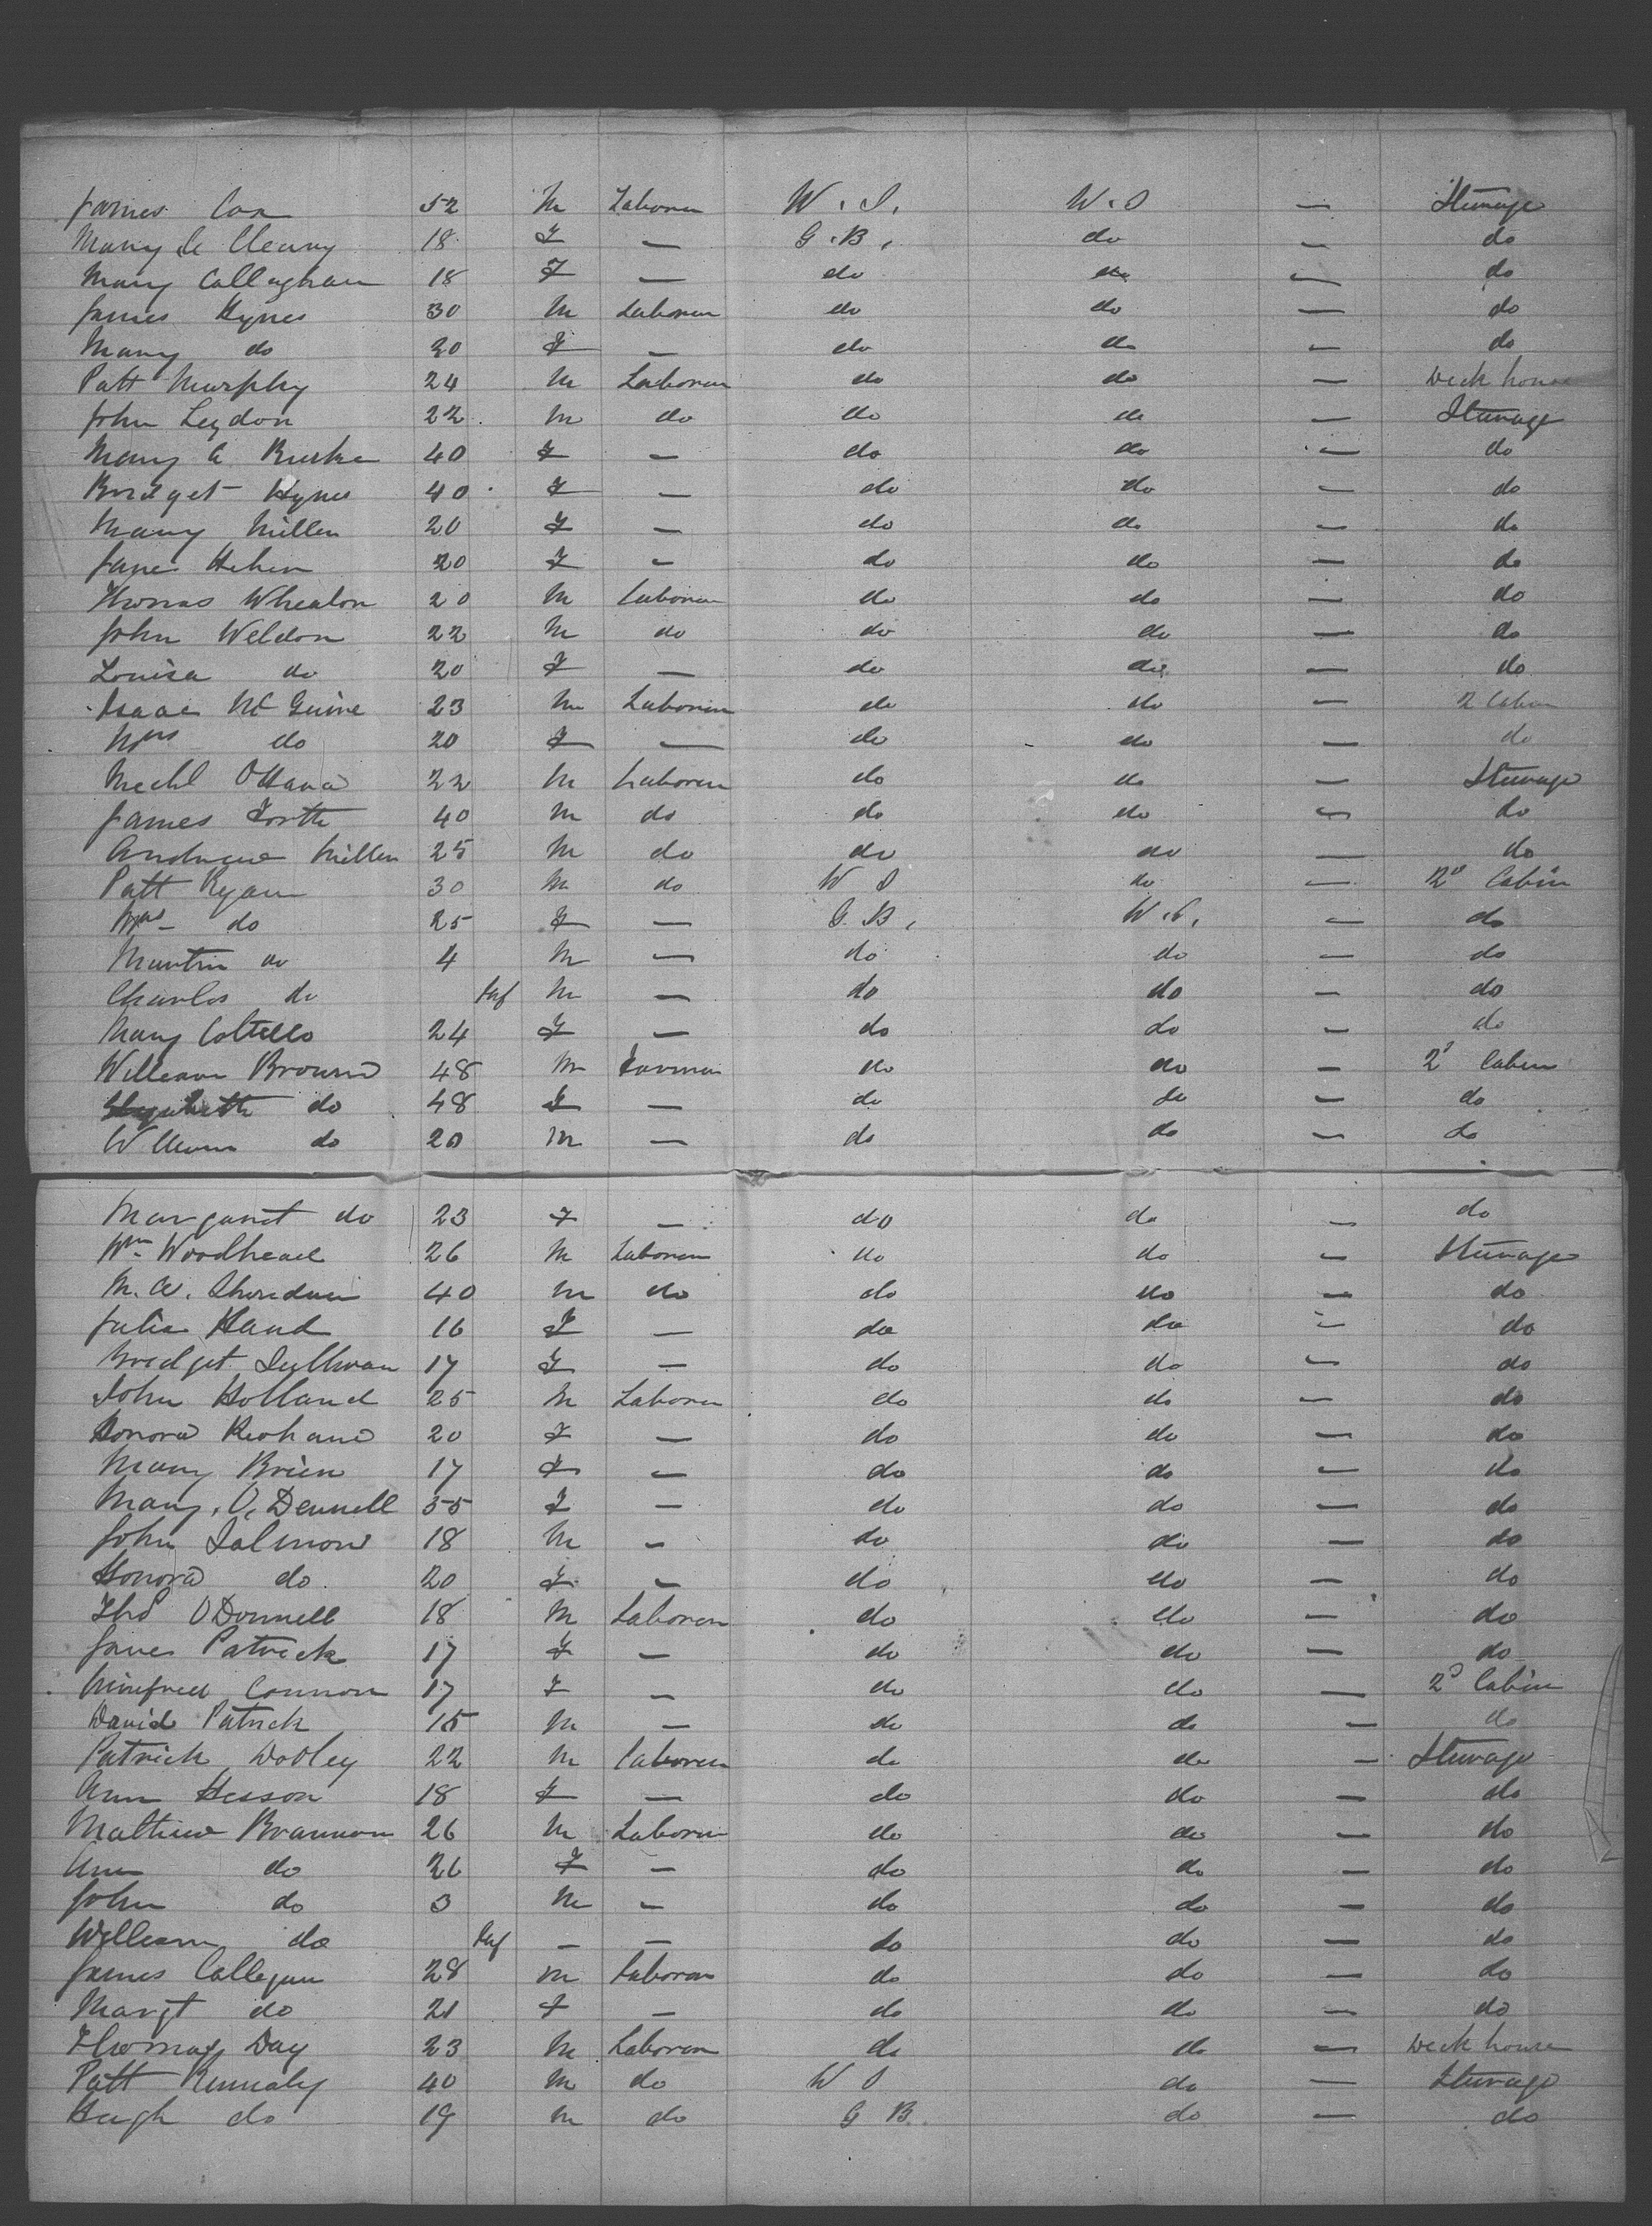 James Cox 52 M Laborer W. S. W. S — Steerage
Mary Mc Cleary 18 F — G. B. do — do
Mary Callaghan 18 F — do do — do
James Hynes 30 M Laborer do do — do
Mary do 20 F — do do — do
Patt Murphy 24 M Laborer do do — Deck house
John Leydon 22 M do do do — Steerage
Mary A Burke 40 F — do do — do
Bridget Hynes 40 F — do do — do
Mary Millen 20 F — do do — do
Jane 20 F — do do — do
Thomas Whealon 20 M Laborer do do — do
John Weldon 22 M do do do — do
Louisa do 20 F — do do — do
Isaac Mc Guire 23 M Laborer do do — 2 Cabin
Mrs do 20 F — do do — do
Michl OHara 22 M Laborer do do — Steerage
James Forth 40 M do do do — do
Andrew Millen 25 M do do do — do
Patt Ryan 30 M do W S do — 2d Cabin
Mrs do 25 F — G. B. W. S. — do
Martin do 4 M — do do — do
Charles do Inf M — do do — do
Mary Coltello 24 F — do do — do
William Brown 48 M Farmer do do — 2d Cabin
Elizabeth do 48 F — do do — do
William do 20 M — do do — do
Margaret do 23 F — do do — do
Wm Woodhead 26 M Laborer do do — Steerage
M. A. Sheridan 40 M do do do — do
Julia Hand 16 F — do do — do
Bridget Sullivan 17 F — do do — do
John Holland 25 M Laborer do do — do
Honora Keohane 20 F — do do — do
Mary Brien 17 F — do do — do
Mary O, Dennell 55 F — do do — do
John Salmon 18 M — do do — do
Honora do 20 F — do do — do
Thos ODonnell 18 M Laborer do do — do
James Patrick 17 F — do do — do
Winifred Connor 17 F — do do — 2d Cabin
David Patrick 15 M — do do — do
Patrick Dooley 22 M Laborer do do — Steerage
Ann Hesson 18 F — do do — do
Mathew Brannon 26 M Laborer do do — do
Ann do 26 F — do do — do
John do 3 M — do do — do
William do Inf — — do do — do
James Callegan 28 M Laborer do do — do
Margt do 21 F — do do — do
Thomas Day 23 M Laborer do do — Deck house
Patt Kennaly 40 M do W S do — Steerage
Hugh do 19 M do G B. do — do